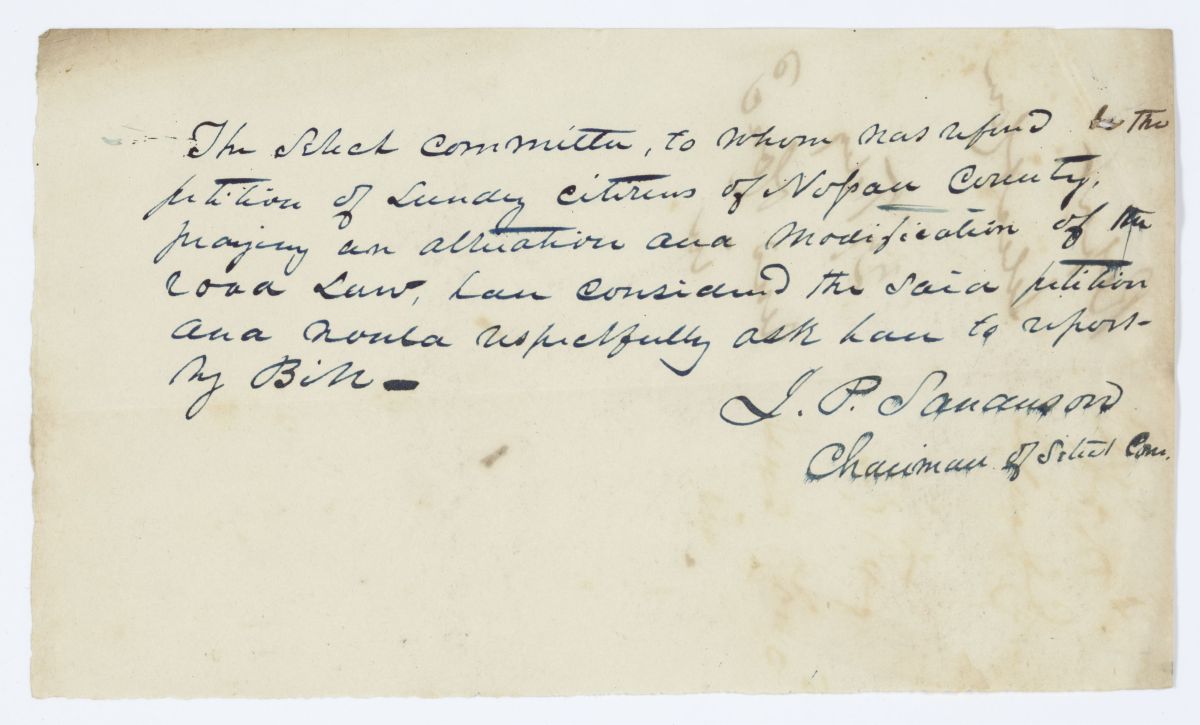 The Select Committee, to whom was referd to the
petition of Sundry citizens of Nassau County,
praying an alteration and modification of the
road Law, have considered the said petition
and would respectfully ask leave to report
by Bill —
J. P. Sanderson
Chairman of Select Com.